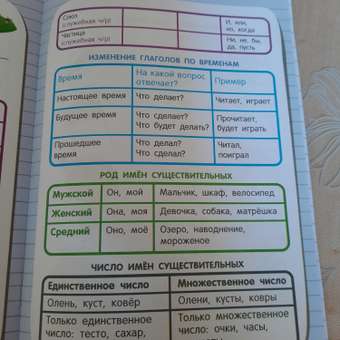 Союз
(служебная ч/р) И, или,
но, когда
Частица
(служебная ч/р) Ни, не, бы,
да, пусть
ИЗМЕНЕНИЕ ГЛАГОЛОВ ПО ВРЕМЕНАМ
Время На какой вопрос
отвечает? Пример
Настоящее время Что делает? Читает, играет
Будущее время Что сделает?
Что будет делать? Прочитает,
будет играть
Прошедшее
время Что делал?
Что сделал? Читал,
поиграл
РОД ИМЁН СУЩЕСТВИТЕЛЬНЫХ
Мужской Он, мой Мальчик, шкаф, велосипед
Женский Она, моя Девочка, собака, матрёшка
Средний Оно, моё Озеро, наводнение,
мороженое
ЧИСЛО ИМЁН СУЩЕСТВИТЕЛЬНЫХ
Единственное число Множественное число
Олень, куст, ковёр Олени, кусты, ковры
Только единственное
число: тесто, сахар, Только множественное
число: очки, часы,